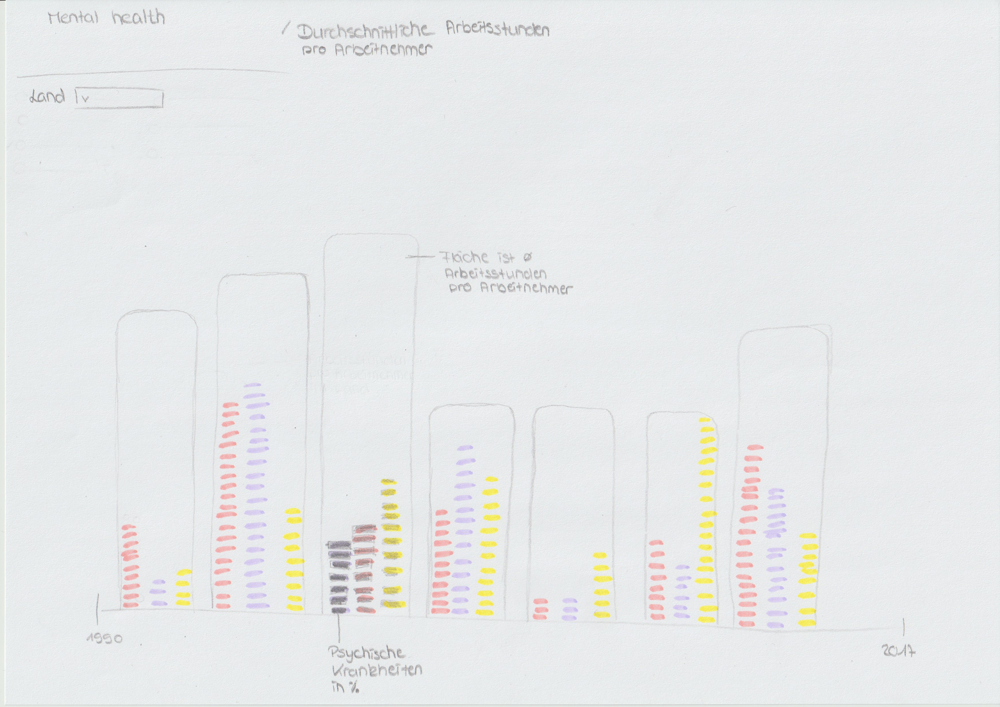 Mental health
/ Durchschnittliche Arbeitsstunden
pro Arbeitnehmer
Land v
Fläche ist ø
Arbeitsstunden
pro Arbeitnehmer
1990
2017
Psychische
Krankheiten
in %